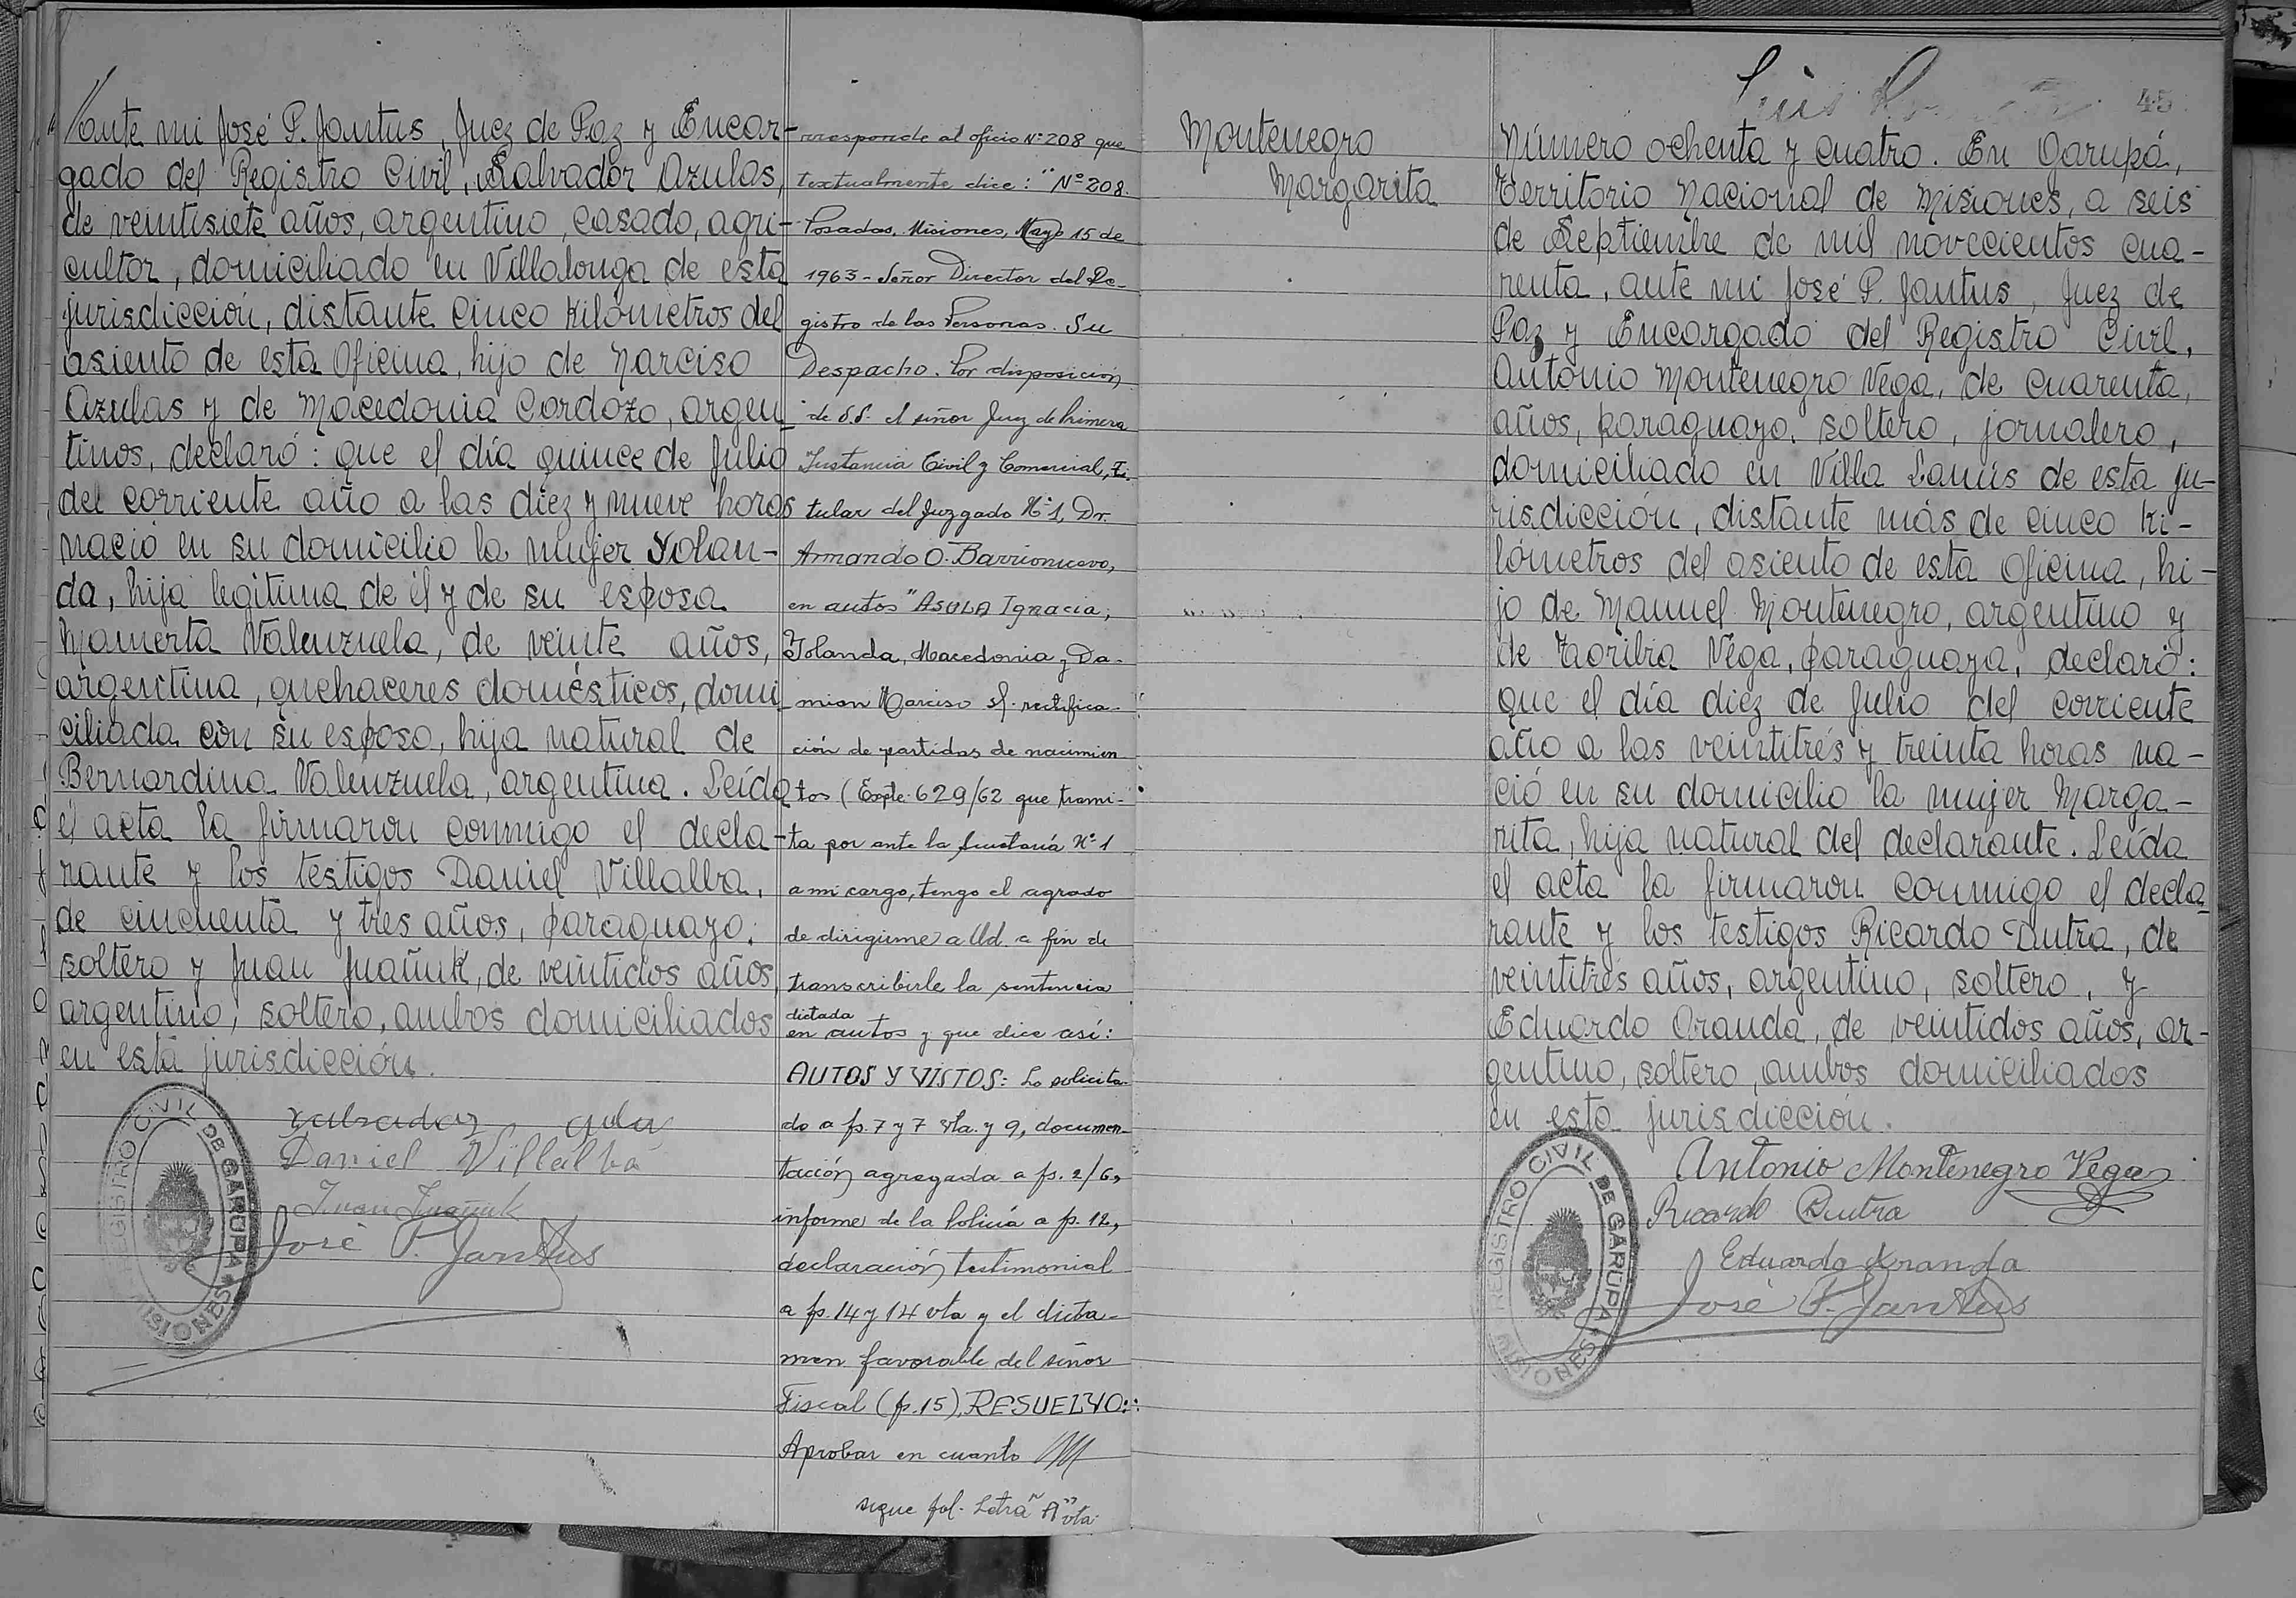 ante mi José P. Jantus, Juez de Paz y Encar-
gado del Registro Civil, Salvador Azulas,
de veintisiete años, argentino, casado, agri-
cultor, domiciliado en Villalonga de esta
jurisdicción, distante cinco kilómetros del
asiento de esta Oficina, hijo de Narciso
Azulas y de Macedonia Cordozo, argen-
tinos, declaró: que el día quince de Julio
del corriente año a las diez y nueve horas
nació en su domicilio la mujer Yolan-
da, hija legitima de él y de su esposa
Mamerta Valenzuela, de veinte años,
argentina, quehaceres domésticos, domi-
ciliada con su esposo, hija natural de
Bernardina Valenzuela, argentina. Leída
el acta la firmaron conmigo el decla-
rante y los testigos Daniel Villalba,
de cincuenta y tres años, paraguayo,
soltero y Juan Juañuk, de veintidos años,
argentino, soltero, ambos domiciliados
en esta jurisdicción.
Daniel Villalba
Juan Juañuk
José P. Jantus
REGISTRO CIVIL DE GARUPA * MISIONES
rresponde al oficio Nº 208 que
textualmente dice: "Nº 208.
Posadas, Misiones, Mayo 15 de
1963 - Señor Director del Re-
gistro de las Personas. Su
Despacho. Por disposición
de S.S. el señor Juez de Primera
Instancia Civil y Comercial, Ti-
tular del Juzgado Nº 1, Dr.
Armando O. Barrionuevo,
en autos "ASULA Ignacia,
Yolanda, Macedonia y Da-
mian Narciso s/. rectifica-
ción de partidas de nacimien
tos (Expte 629/62 que trami-
ta por ante la Secretaría Nº 1
a mi cargo, tengo el agrado
de dirigirme a Ud. a fin de
transcribirle la sentencia
dictada
en autos y que dice así:
AUTOS Y VISTOS: Lo solicita-
do a fs. 7 y 7 vta. y 9, documen-
tación agregada a fs. 2/6,
informe de la Policía a fs. 12,
declaración testimonial
a fs. 14 y 14 vta y el dicta-
men favorable del señor
Fiscal (fs. 15), RESUELVO:
Aprobar en cuanto
sigue fol. Letra "A" vta.
Montenegro
Margarita
Luis
45
Número ochenta y cuatro. En Garupá,
Territorio Nacional de Misiones, a seis
de Septiembre de mil novecientos cua-
renta, ante mi José P. Jantus, Juez de
Paz y Encargado del Registro Civil,
Antonio Montenegro Vega, de cuarenta,
años, paraguayo, soltero, jornalero,
domiciliado en Villa Lanús de esta ju-
risdicción, distante más de cinco ki-
lómetros del asiento de esta Oficina, hi-
jo de Manuel Montenegro, argentino y
de Toribia Vega, paraguaya, declaró:
que el día diez de Julio del corriente
año a las veintitrés y treinta horas na-
ció en su domicilio la mujer Marga-
rita, hija natural del declarante. Leída
el acta la firmaron conmigo el decla-
rante y los testigos Ricardo Dutra, de
veintitrés años, argentino, soltero, y
Eduardo Aranda, de veintidos años, ar-
gentino, soltero, ambos domiciliados
en esta jurisdicción.
Antonio Montenegro Vega
Ricardo Dutra
Eduardo Aranda
José P. Jantus
REGISTRO CIVIL DE GARUPA * MISIONES